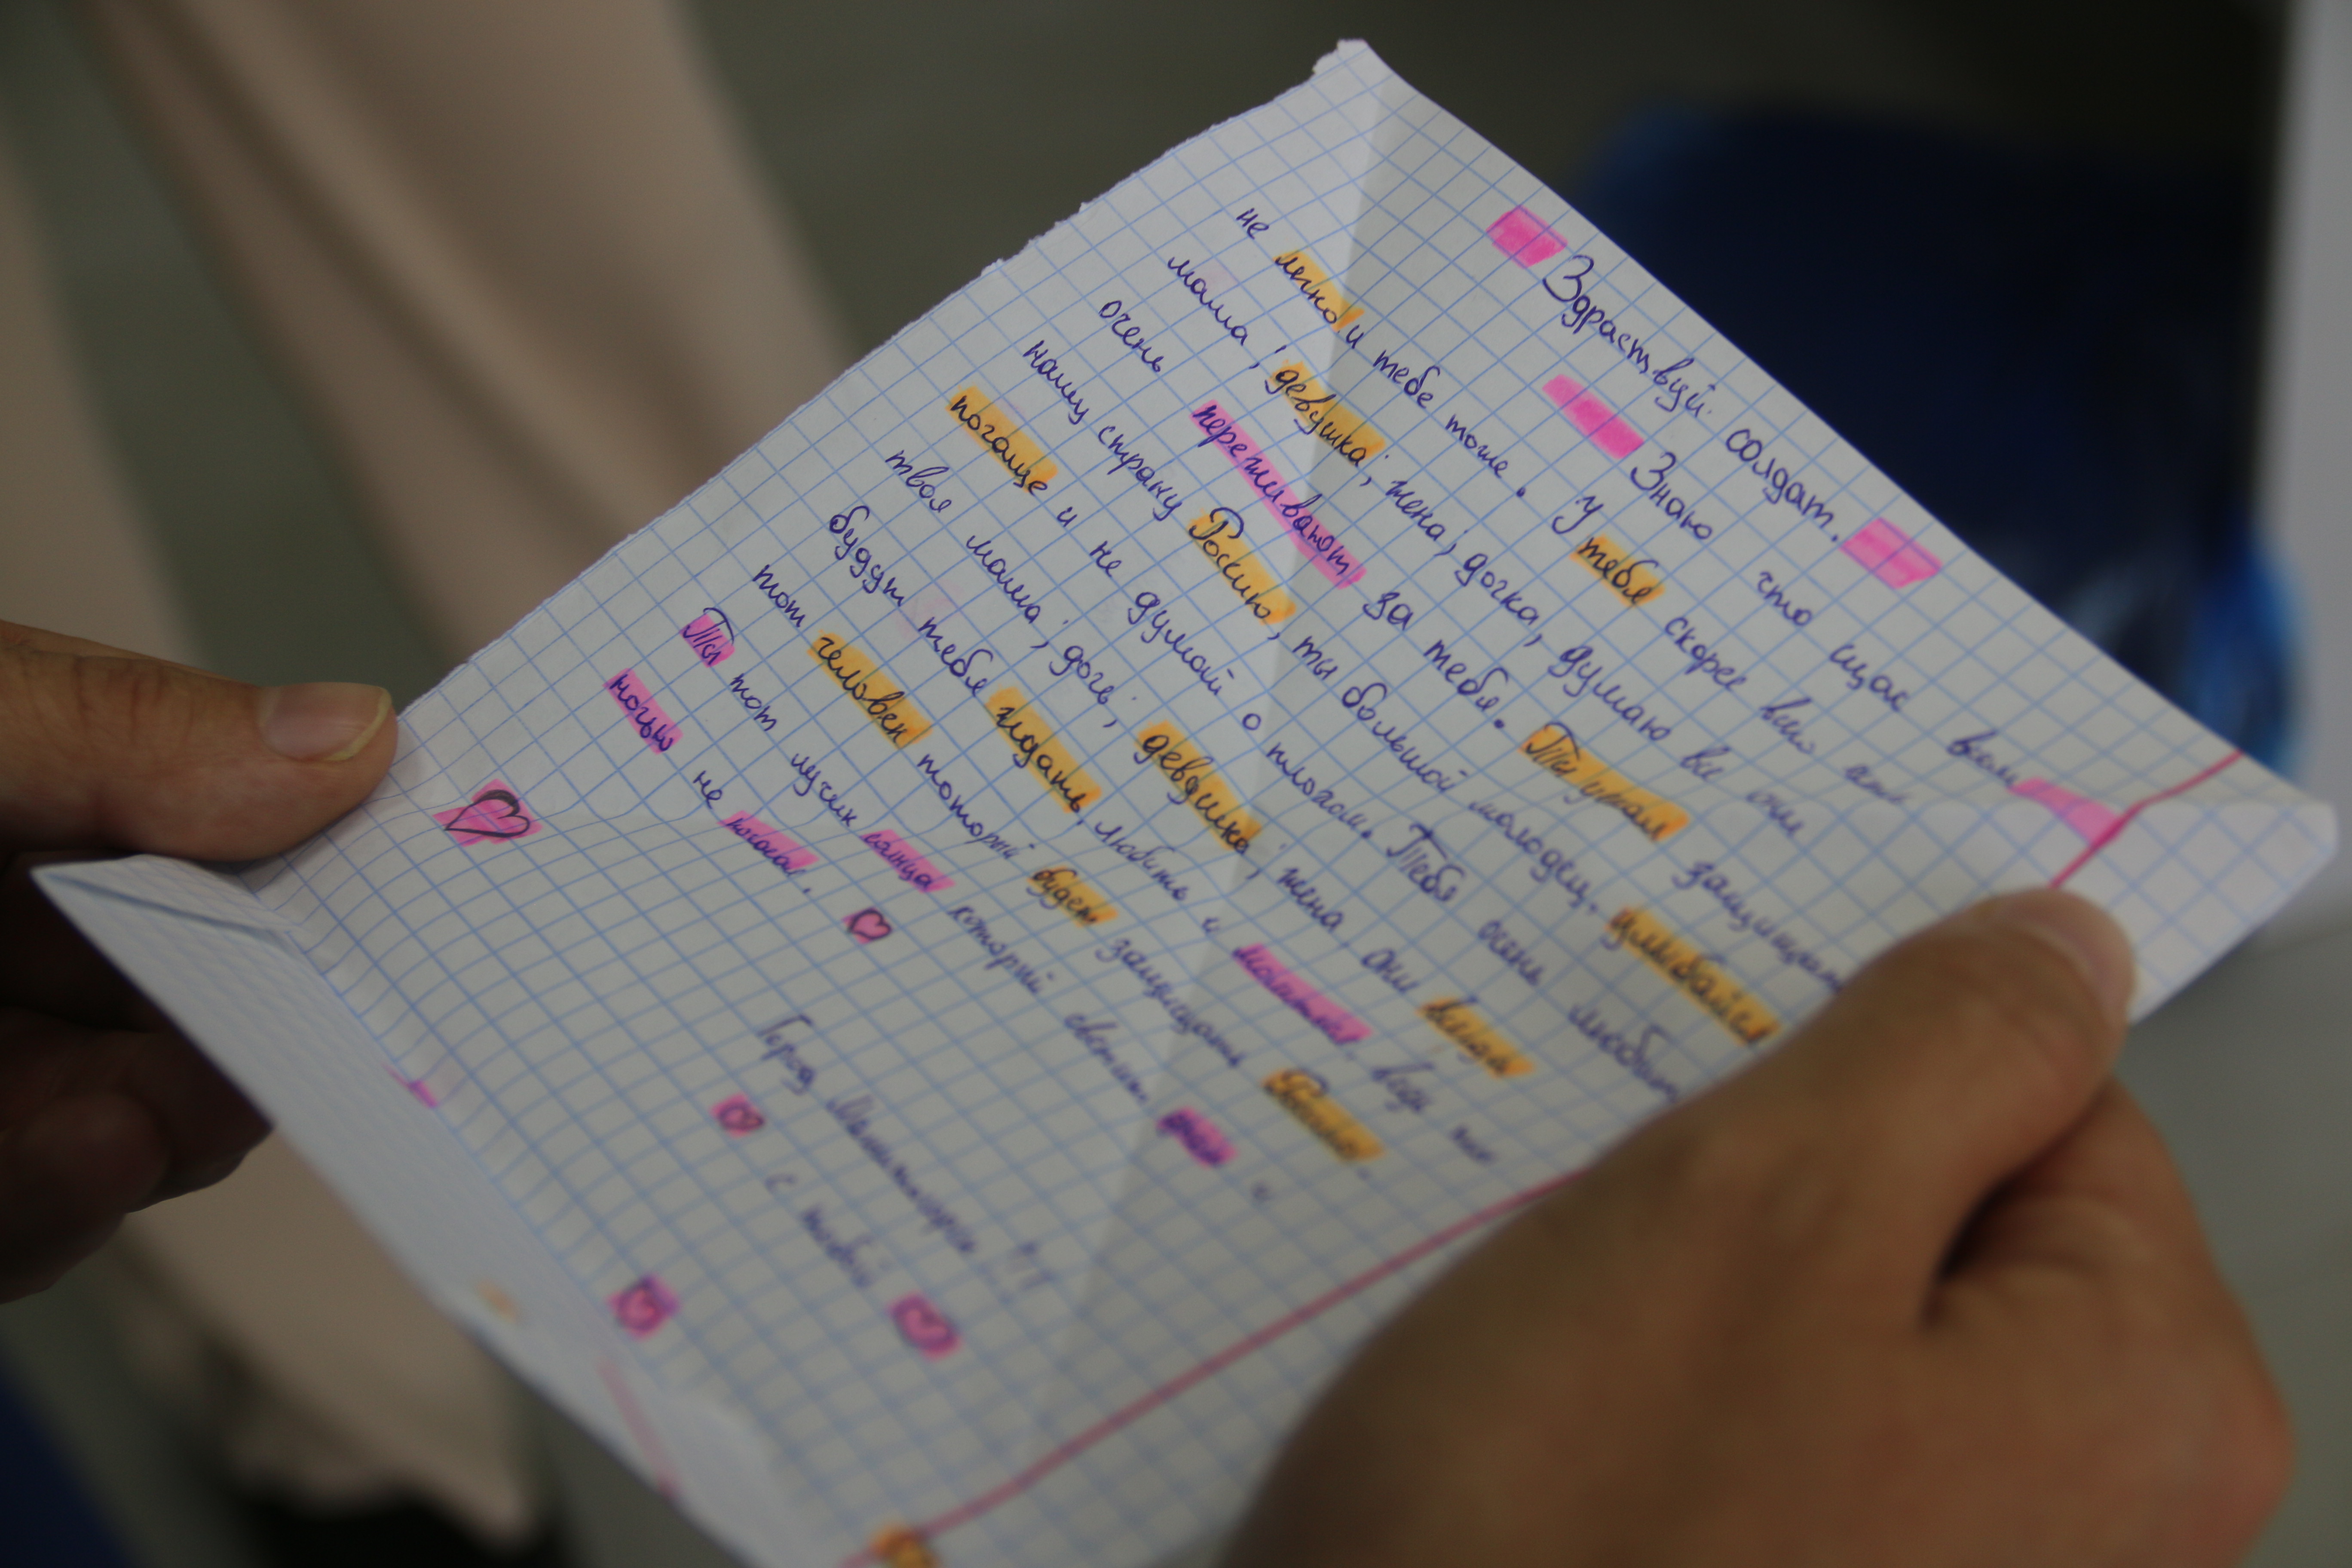 Здраствуй солдат.
Знаю что щас вам
не легко и тебе тоже. У тебя скорее всего есть
мама, девушка, жена, дочка, думаю все они
очень переживают за тебя. Ты защищаешь
нашу страну Россию, ты большой молодец, улыбайся
почаще и не думай о плохом. Тебя очень любит
твоя мама, доч, девушка, жена, они всегда
будут тебя ждать, любить и ведь ты
тот человек который будет защищать Россию.
Ты тот лучик солнца который светит днем и
ночью не
Город !!!
с тобой